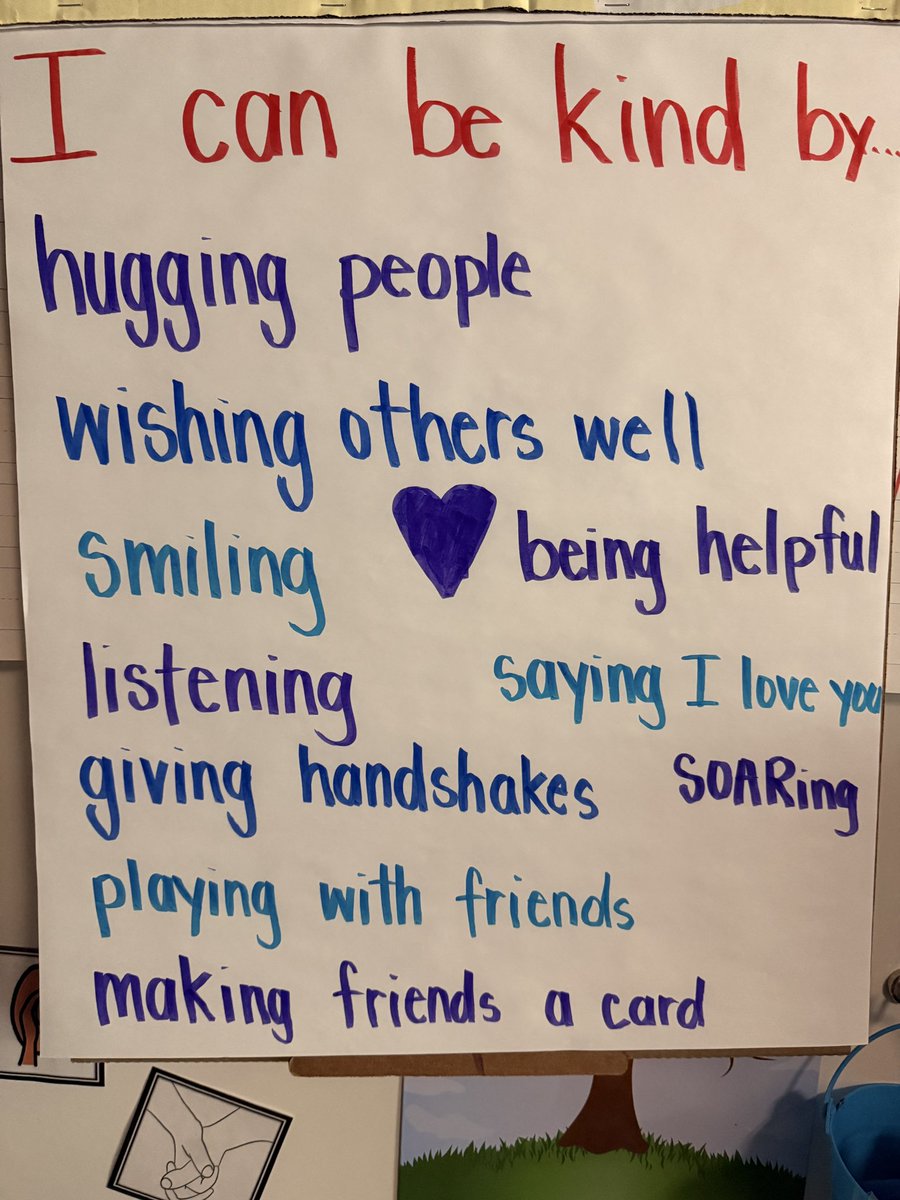 I can be kind by...
hugging people
wishing others well
smiling
being helpful
listening
saying I love you
giving handshakes
SOARing
playing with friends
making friends a card